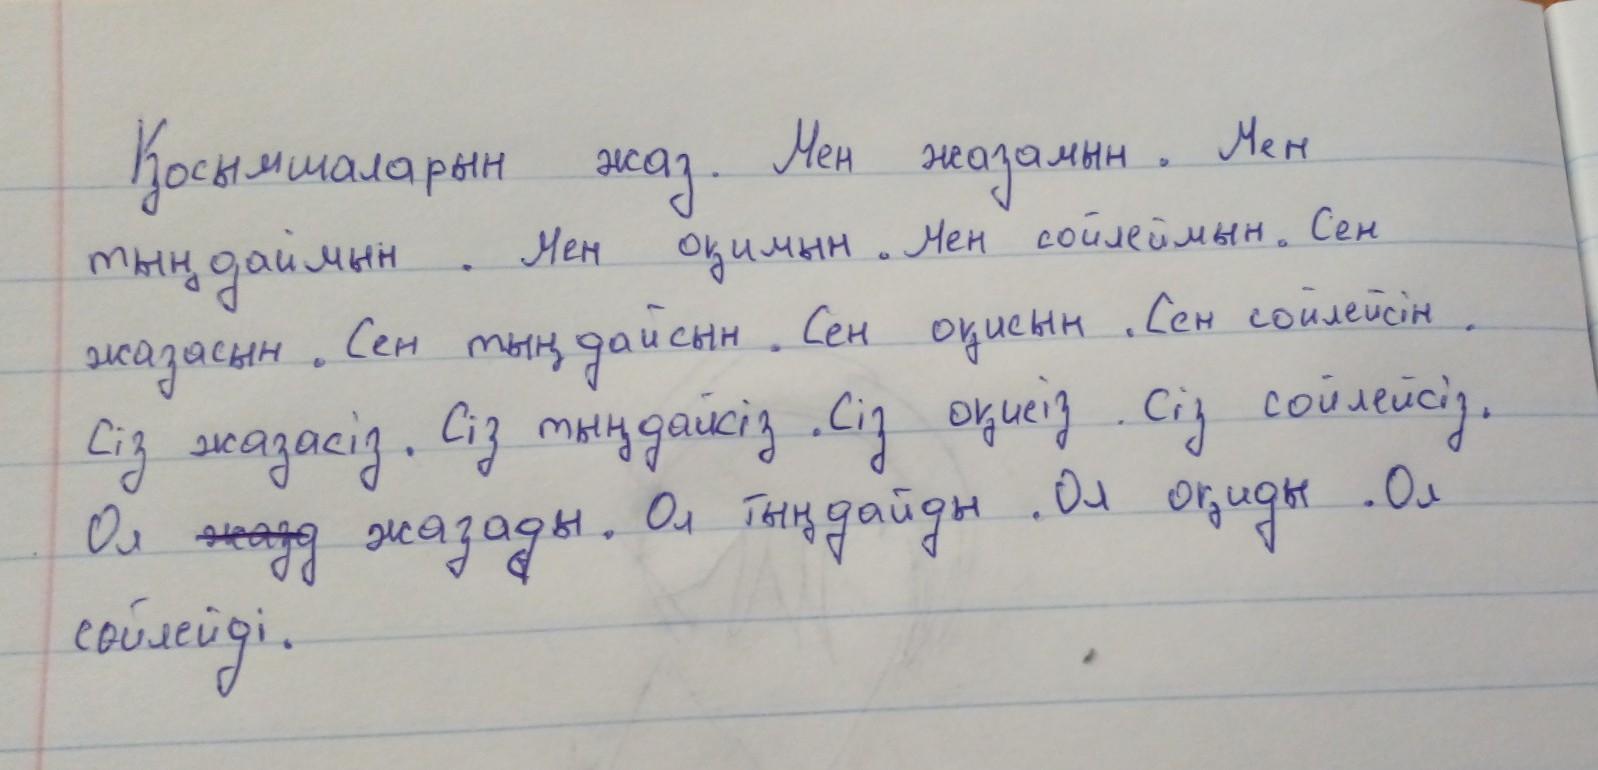 Қосымшаларын жаз. Мен жазамын. Мен
тыңдаймын. Мен оқимын. Мен сойлеймын. Сен
жазасын. Сен тыңдайсын. Сен оқисын. Сен сойлейсін.
Сіз жазасіз. Сіз тыңдайсіз. Сіз оқисіз. Сіз сойлейсіз.
Ол жазады. Ол тыңдайды. Ол оқиды. Ол
сөйлейді.